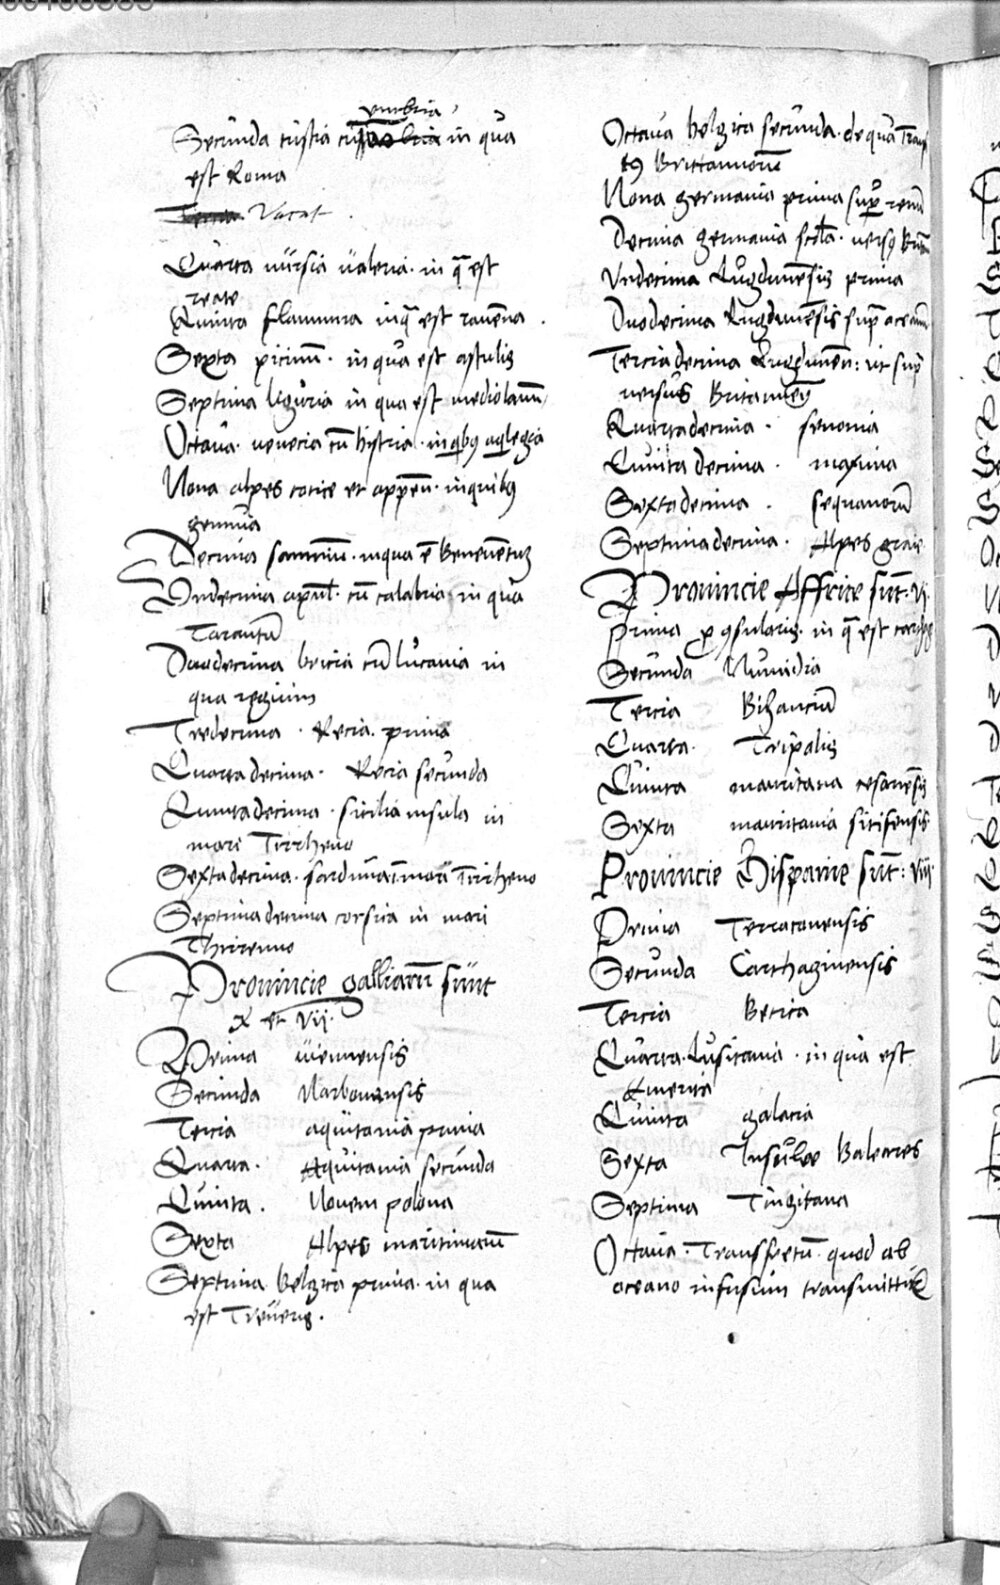 umbria
Secunda tustia cum in qua
est Roma
Vacat
Quarta nursia valeria in qua est
reate
Quinta flaminia inqua est ravenna
Sexta picinum in qua est astulis
Septima liguria in qua est mediolanum
Octava venecia cum histria in quibus aqulegia
Nona alpes cocie et appenn inquibus
genuua
Decima samnium inqua est Beneventum
Undecima apul. cum calabria in qua
Tarantum
Duodecima bricia cum lucania in
qua regium
Tredecima Recia prima
Quartadecima Recia secunda
Quintadecima sicilia insula in
mari Tirrheno
Sextadecima sardinia in mari Tirrheno
Septimadecima corsica in mari
Thirrenno
Provincie galliarum sunt
x et vii
Prima viennensis
Secunda Narbonensis
Tercia aquitania prima
Quarta Aquitania secunda
Quinta Novem polona
Sexta Alpes maritimarum
Septima belgica prima in qua
est Treveris
Octava belgica secunda de qua
Brittannorum
Nona germania prima super renum
Decima germania scda versus
Undecima Lugdunensis prima
Duodecima Lugdunensis supra oceanum
Terciadecima Lugdunen: ut supra
versus
Quartadecima senonia
Quintadecima maxima
Sextadecima sequanorum
Septimadecima Alpes graie
Provincie Affrice sunt vi
Prima proconsularis in qua est
Secunda Numidia
Tercia Bizancium
Quarta Tripalis
Quinta mauritana cesariensis
Sexta mauritania sitifensis
Provincie Hispanie sunt: viii
Prima Terraconensis
Secunda Carthaginensis
Tercia Betica
Quarta Lusitania in qua est
Emerita
Quinta galacia
Sexta Insulae Baleares
Septima Tingitana
Octava Transfretum quod ab
oceano infusum transmittitur